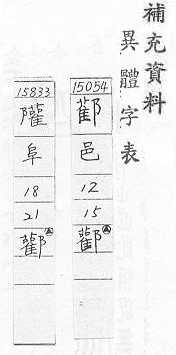 補充資料
異體字表
15054
邑
12
15
酄
15833
阜
18
21
酄